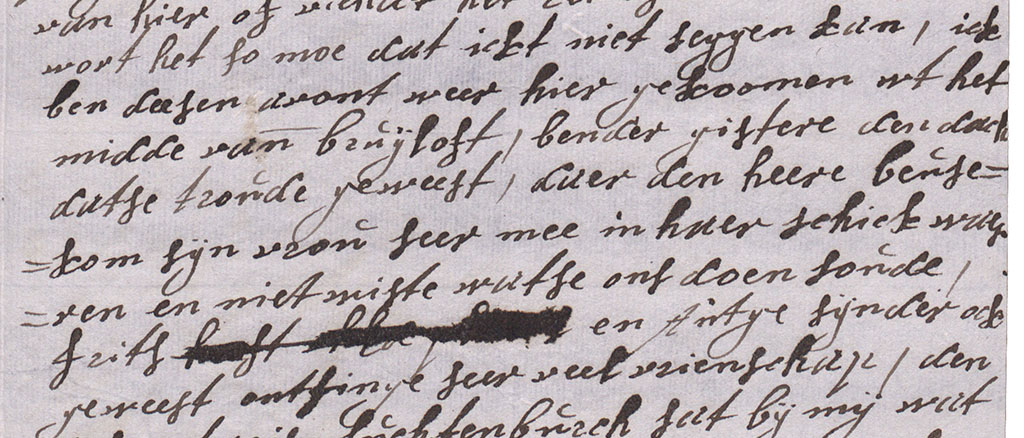 van hier of
wort het so moe dat ickt niet seggen kan, ick
ben deesen avont weer hier gekoomen ut het
midde van bruÿloft, bender gistere den dach
datse troude geweest, daer den heere beuse=
=kom sijn vrou seer mee in haer schick wae
=ren en niet wiste watse ons doen soude,
frits en sijnder ock
geweest ontfinge seer veel vrienschap, den
sat bij mij wat